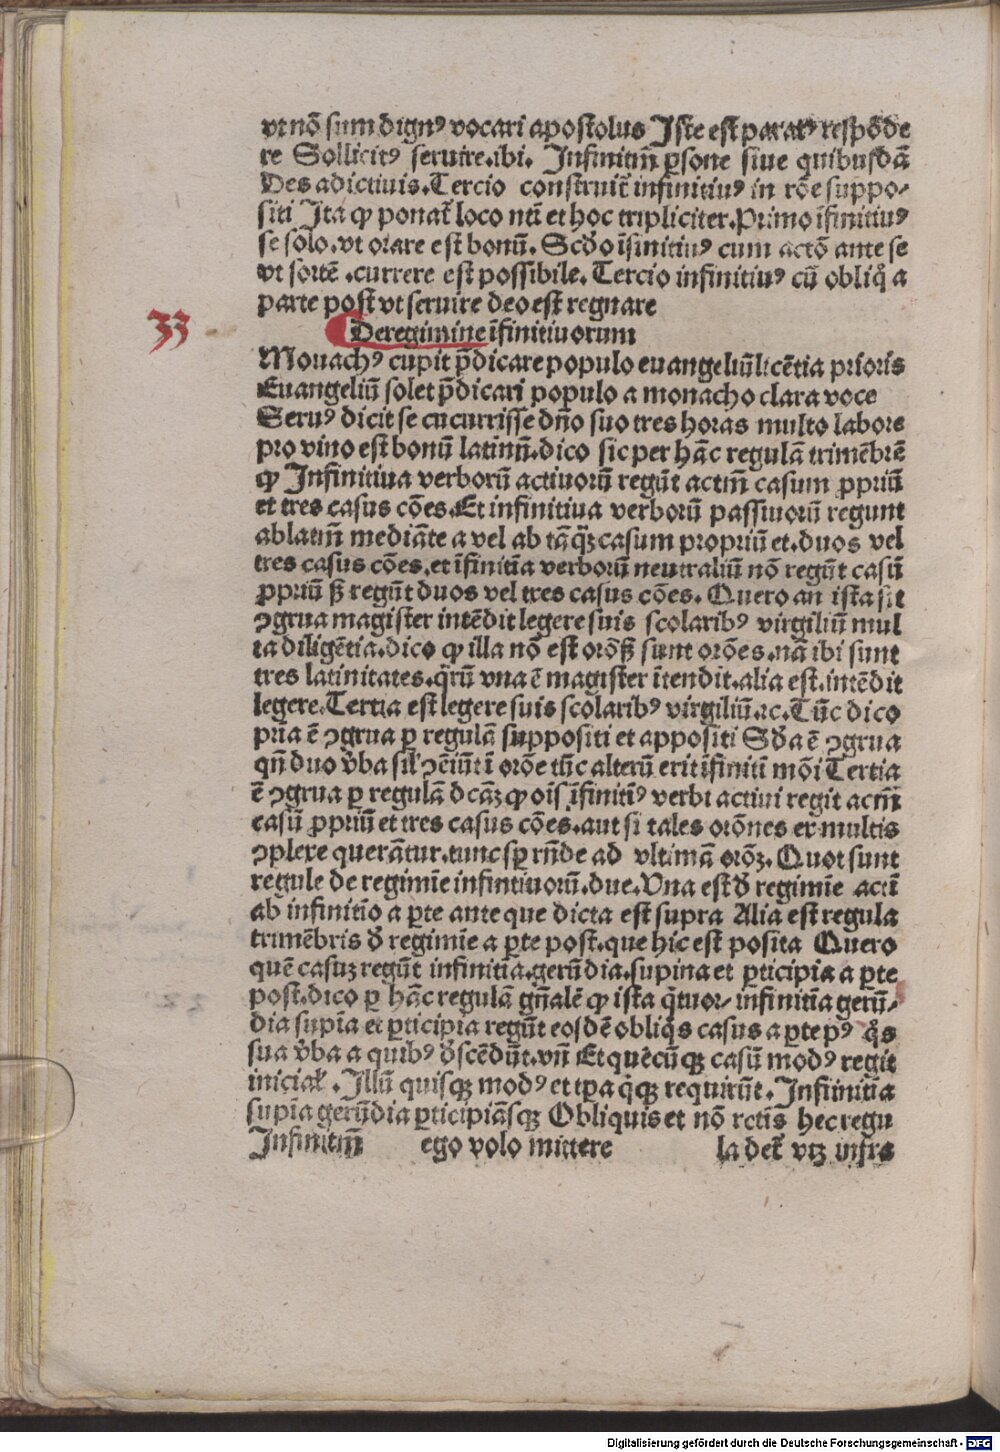 vt nō sum dignꝰ vocari apostolus Iste est paratꝰ respōde
re Sollicitꝰ seruire.ibi. Infinitiū ꝑsone siue quibusdā
Des adictiuis.Tercio construit̄ infinitiuꝰ in rōe suppo⸗
siti Ita ꝙ ponat̄ loco nti et hoc tripliciter.Primo īfinitiuꝰ
se solo.vt orare est bonū. Scd̄o īfinitiuꝰ cum actō ante se
vt sortē .currere est possibile. Tercio infinitiuꝰ cū obliq̄ a
parte post vt seruire deo est regnare
33
De regimine īfinitiuorum
Monachꝰ cupit p̄dicare populo euangeliū licētia prioris
Euangeliū solet p̄dicari populo a monacho clara voce
Seruꝰ dicit se cucurrisse dño suo tres horas multo labore
pro vino est bonū latinū.dico sic per hāc regulā trimēbrē
ꝙ Infinitiua verborū actiuorū regūt actm̄ casum ꝓpriū
et tres casus cōes.Et infinitiua verborū passiuorū regunt
ablatiū mediāte a vel ab tāq̄ꝫ casum propriū et.duos vel
tres casus cōes.et īfinitīa verborū neutraliū nō regūt casū
ꝓpriū ſꝫ regūt duos vel tres casus cōes. Quero an ista sit
ꝯgrua magister intēdit legere suis scolaribꝰ virgiliū mul
ta diligētia.dico ꝙ illa nō est orō ſꝫ sunt orōes.nā ibi sunt
tres latinitates.q̄rū vna ē magister ītendit.alia est.intēdit
legere.Tertia est legere suis scolaribꝰ virgiliū.ꝛc.Tūc dico
pria ē ꝯgrua ꝑ regulā suppositi et appositi Sd̄a ē ꝯgrua
qn̄ duo v̄ba sil̄ ꝯēiūt ī orōe tūc alterū erit īfiniti mōi Tertia
ē ꝯgrua ꝑ regulā dcāꝫ ꝙ oīs īfinitiꝰ verbi actiui regit actm̄
casū ꝓpriū et tres casus cōes.aut si tales orōnes ex multis
ꝯplexe querātur.tunc sꝑ rn̄de ad vltimā orōꝫ. Quot sunt
regule de regimīe infintiuorū.due.Vna est d̄ regimīe acti
ab infinitīo a ꝑte ante que dicta est supra Alia est regula
trimēbris d̄ regimīe a ꝑte post.que hic est posita Quero
quē casuꝫ regūt infinitīa.gerūdia.supina et ꝑticipia a ꝑte
post.dico ꝑ hāc regulā gn̄alē ꝙ ista q̄tuor⸗ infinitīa gerū⸗
dia supīa et ꝑticipia regūt eosdē obliq̄s casus a ꝑte pꝰ q̄s
sua v̄ba a quibꝰ d̄scēdūt.vn̄ Et quēcūqꝫ casū modꝰ regit
iniciał . Illū quisqꝫ modꝰ et tꝑa q̄qꝫ requirūt. Infiinitīa
supīa gerūdia ꝑticipiāsqꝫ Obliquis et nō rctīs hec regu
Infinitiū ego volo mittere la det̄ vtꝫ infra
Digitalisierung gefördert durch die Deutsche Forschungsgemeinschaft - DFG